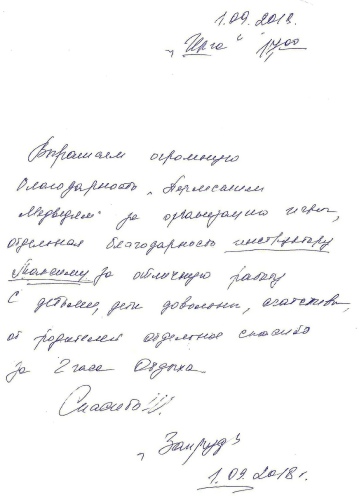 1.09.2018г.
„Игра“ 17 00
Выражаем огромную
благодарность „Пермским
Медведям“ за организацию игры,
отдельная благодарность инструктору
Максиму за отличную работу
с детьми, дети довольны, счастливы,
от родителей отдельное спасибо
за 2 часа отдыха.
Спасибо!!!
1.09.2018г.